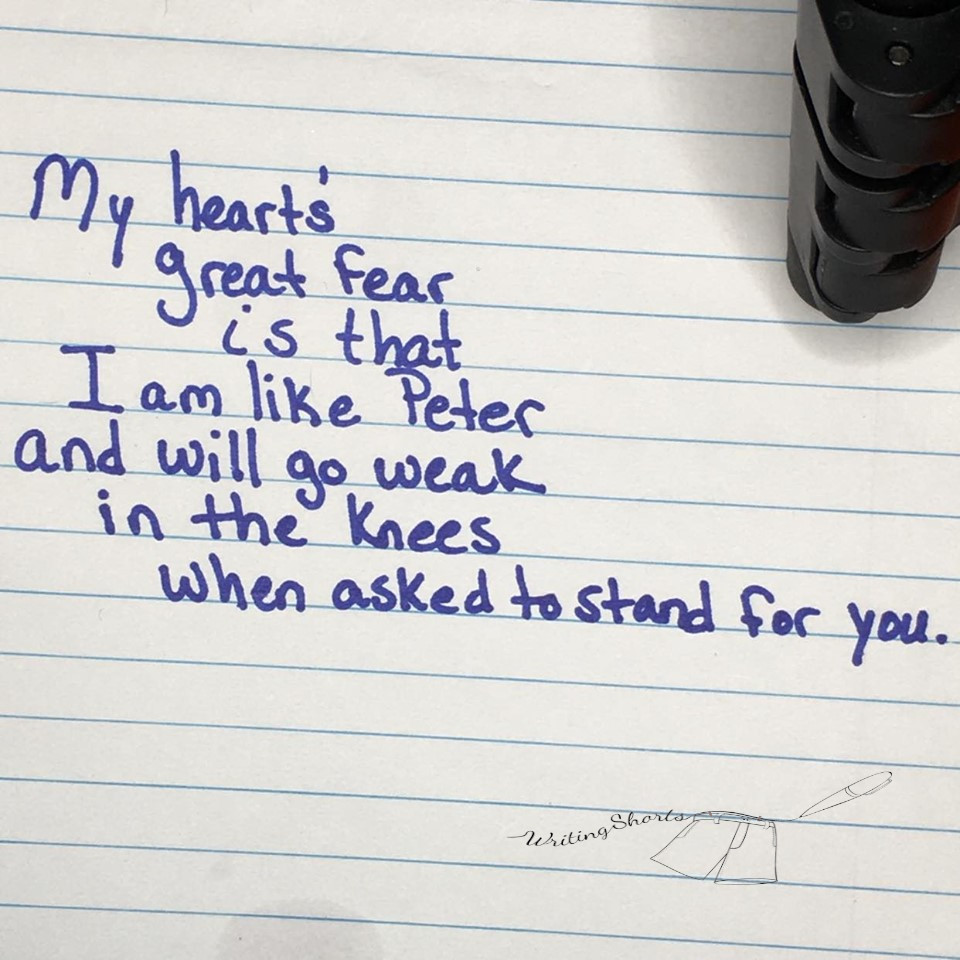 My heart's
great fear
is that
I am like Peter
and will go weak
in the knees
when asked to stand for you.
WritingShorts